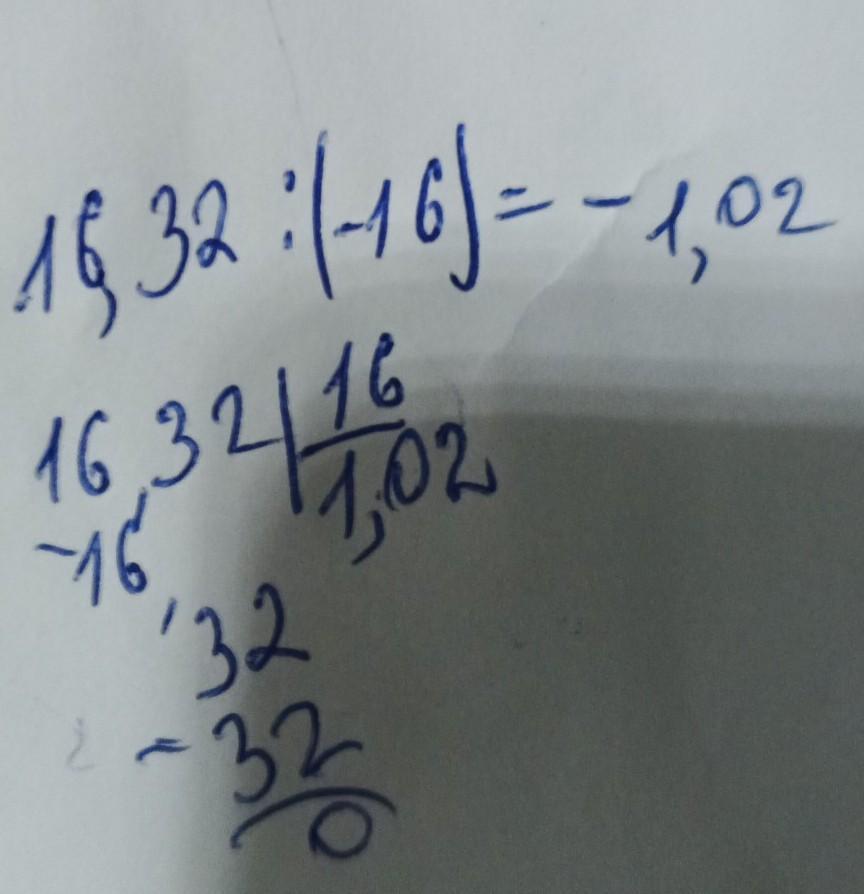 16,32 :(-16)= -1,02
16,32|16
-16, 1,02
32
-32
0